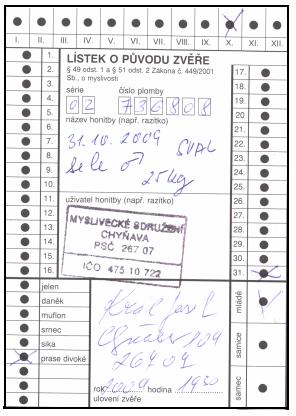 I. II. III. IV. V. VI. VII. VIII. IX. X. XI. XII.
LÍSTEK O PŮVODU ZVĚŘE
§ 49 odst. 1 a § 51 odst. 2 Zákona č. 449/2001
Sb., o myslivosti
série číslo plomby
02 736808
název honitby (např. razítko)
31. 10. 2009
sele ♂ SVAL
25 kg
uživatel honitby (např. razítko)
MYSLIVECKÉ SDRUŽENÍ
CHYŇAVA
PSČ 267 07
IČO 475 10 722
1.
2.
3.
4.
5.
6.
7.
8.
9.
10.
11.
12.
13.
14.
15.
16.
17.
18.
19.
20.
21.
22.
23.
24.
25.
26.
27.
28.
29.
30.
31.
jelen
daněk
muflon
srnec
sika
prase divoké
mládě
samice
samec
Král
104
rok 2009 hodina 1930
ulovení zvěře